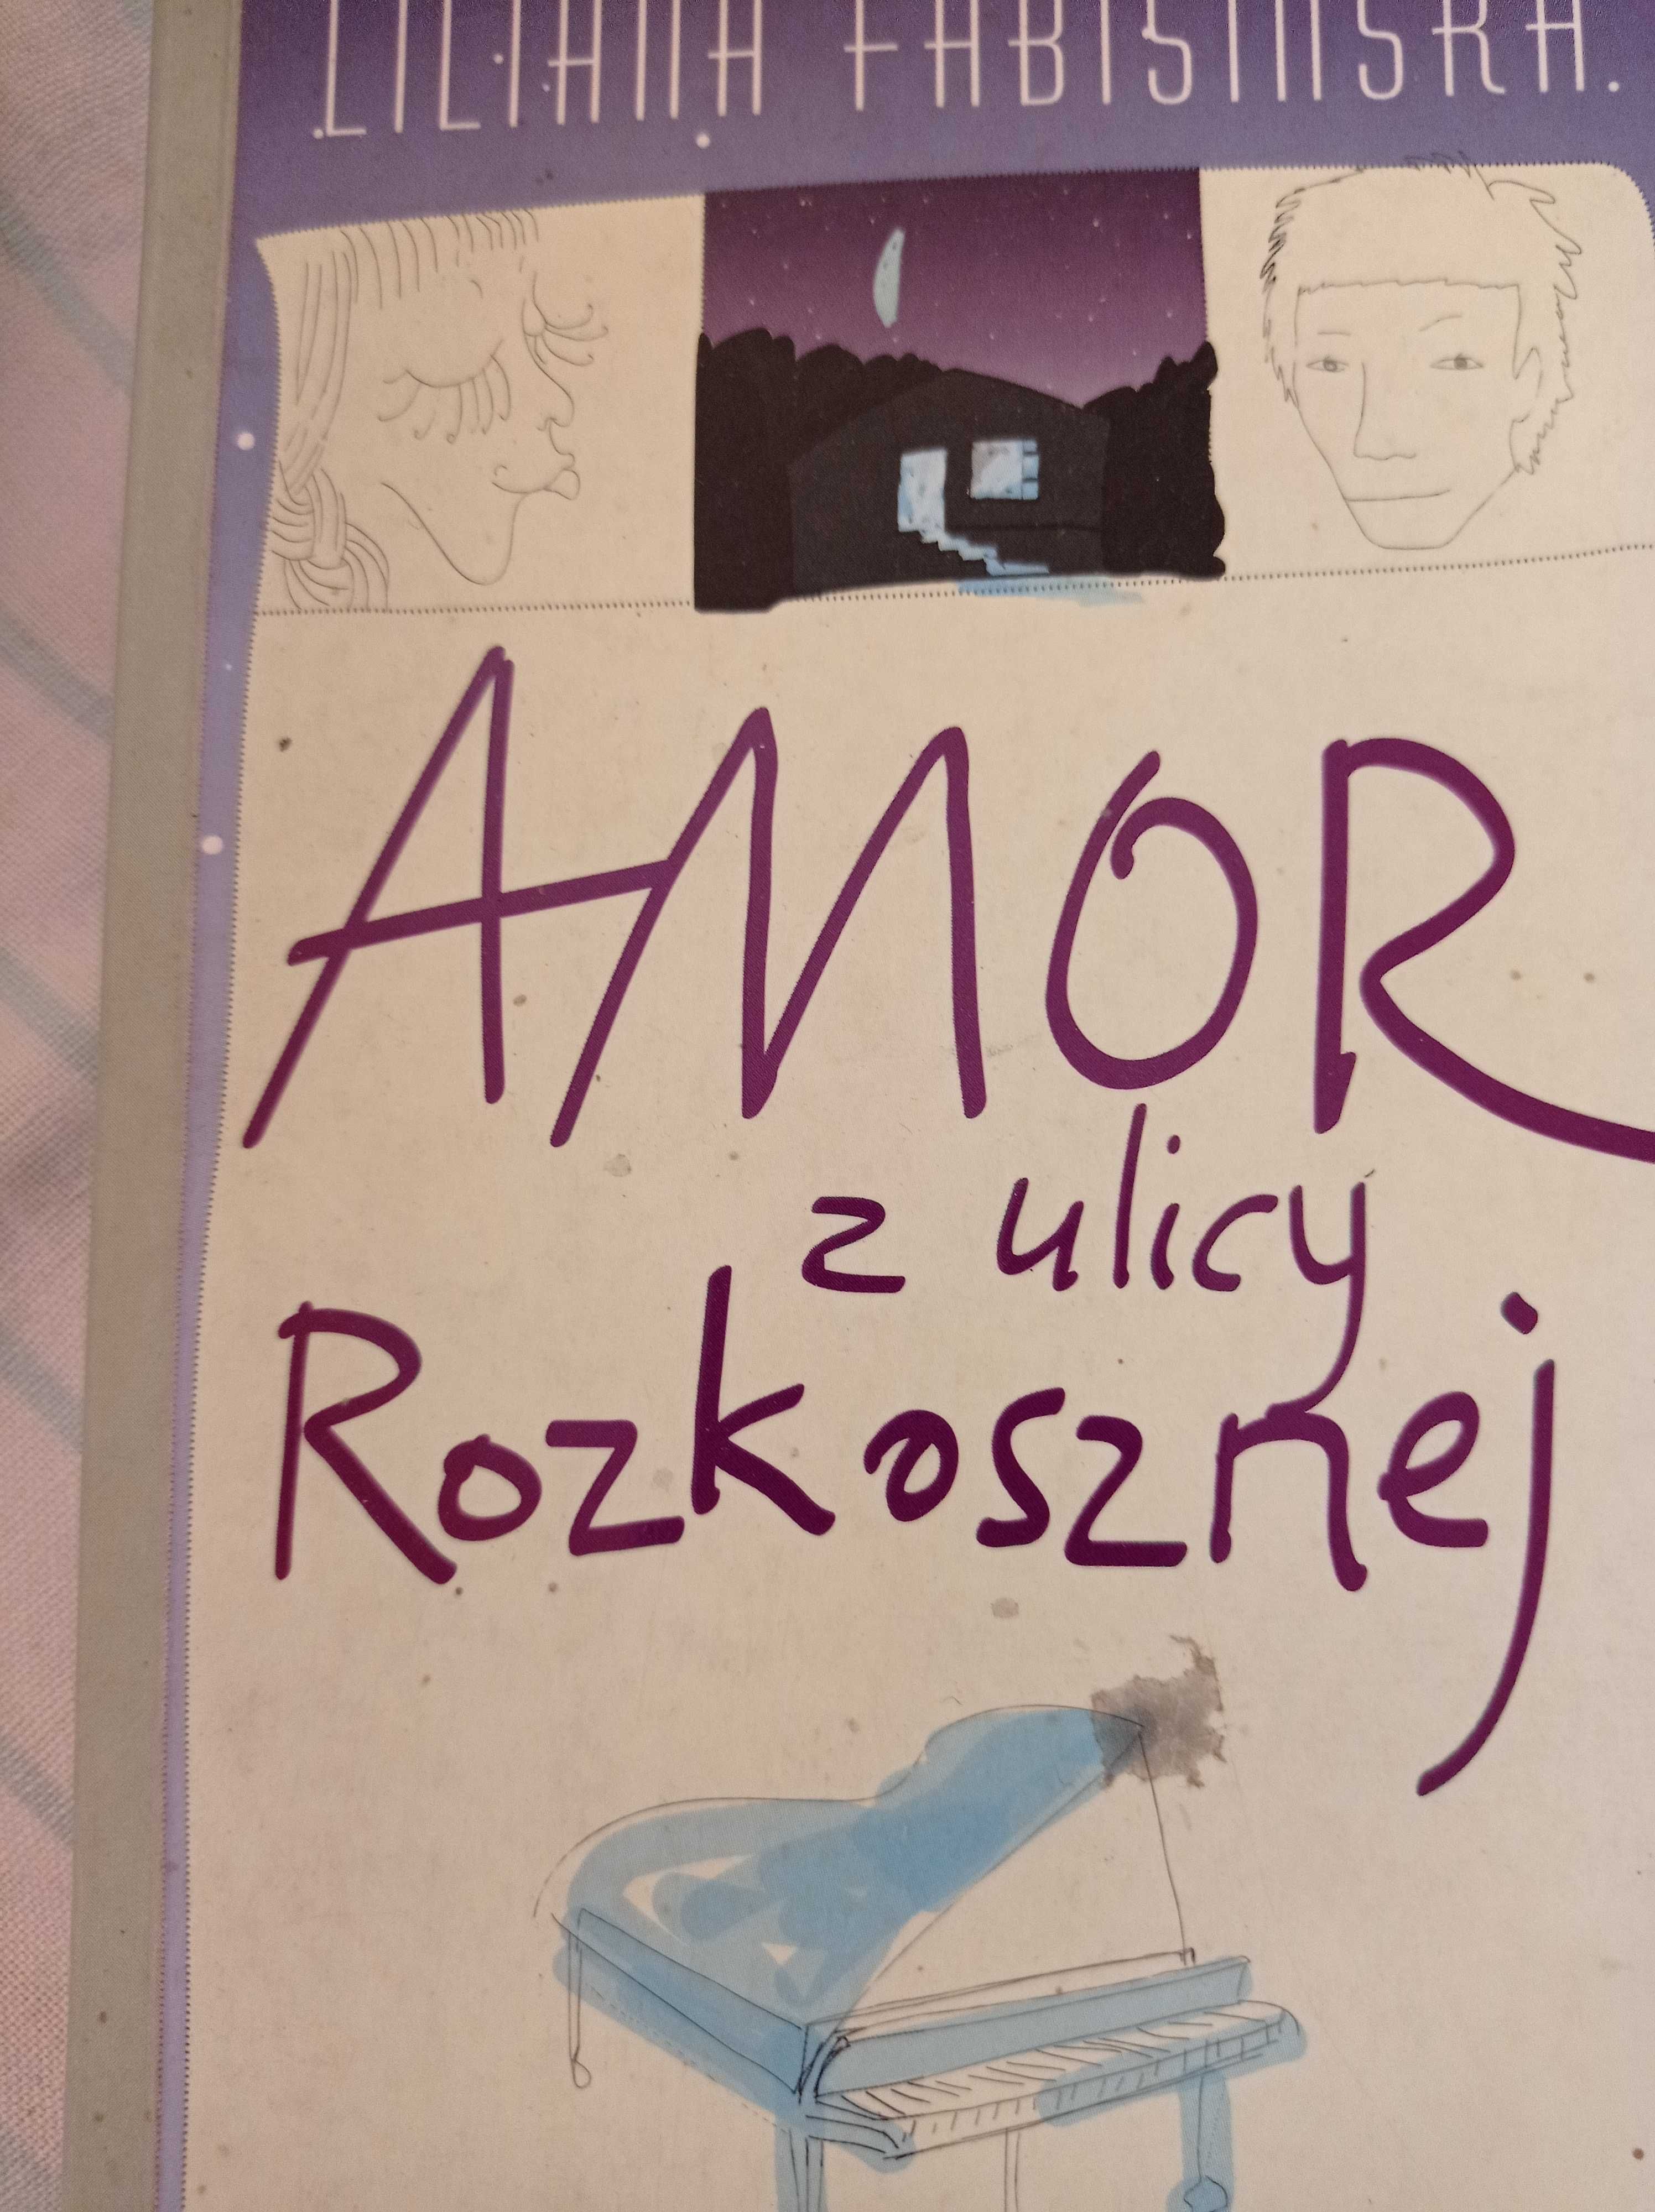 LILIANA FABISIŃSKA
AMOR
z ulicy
Rozkosznej